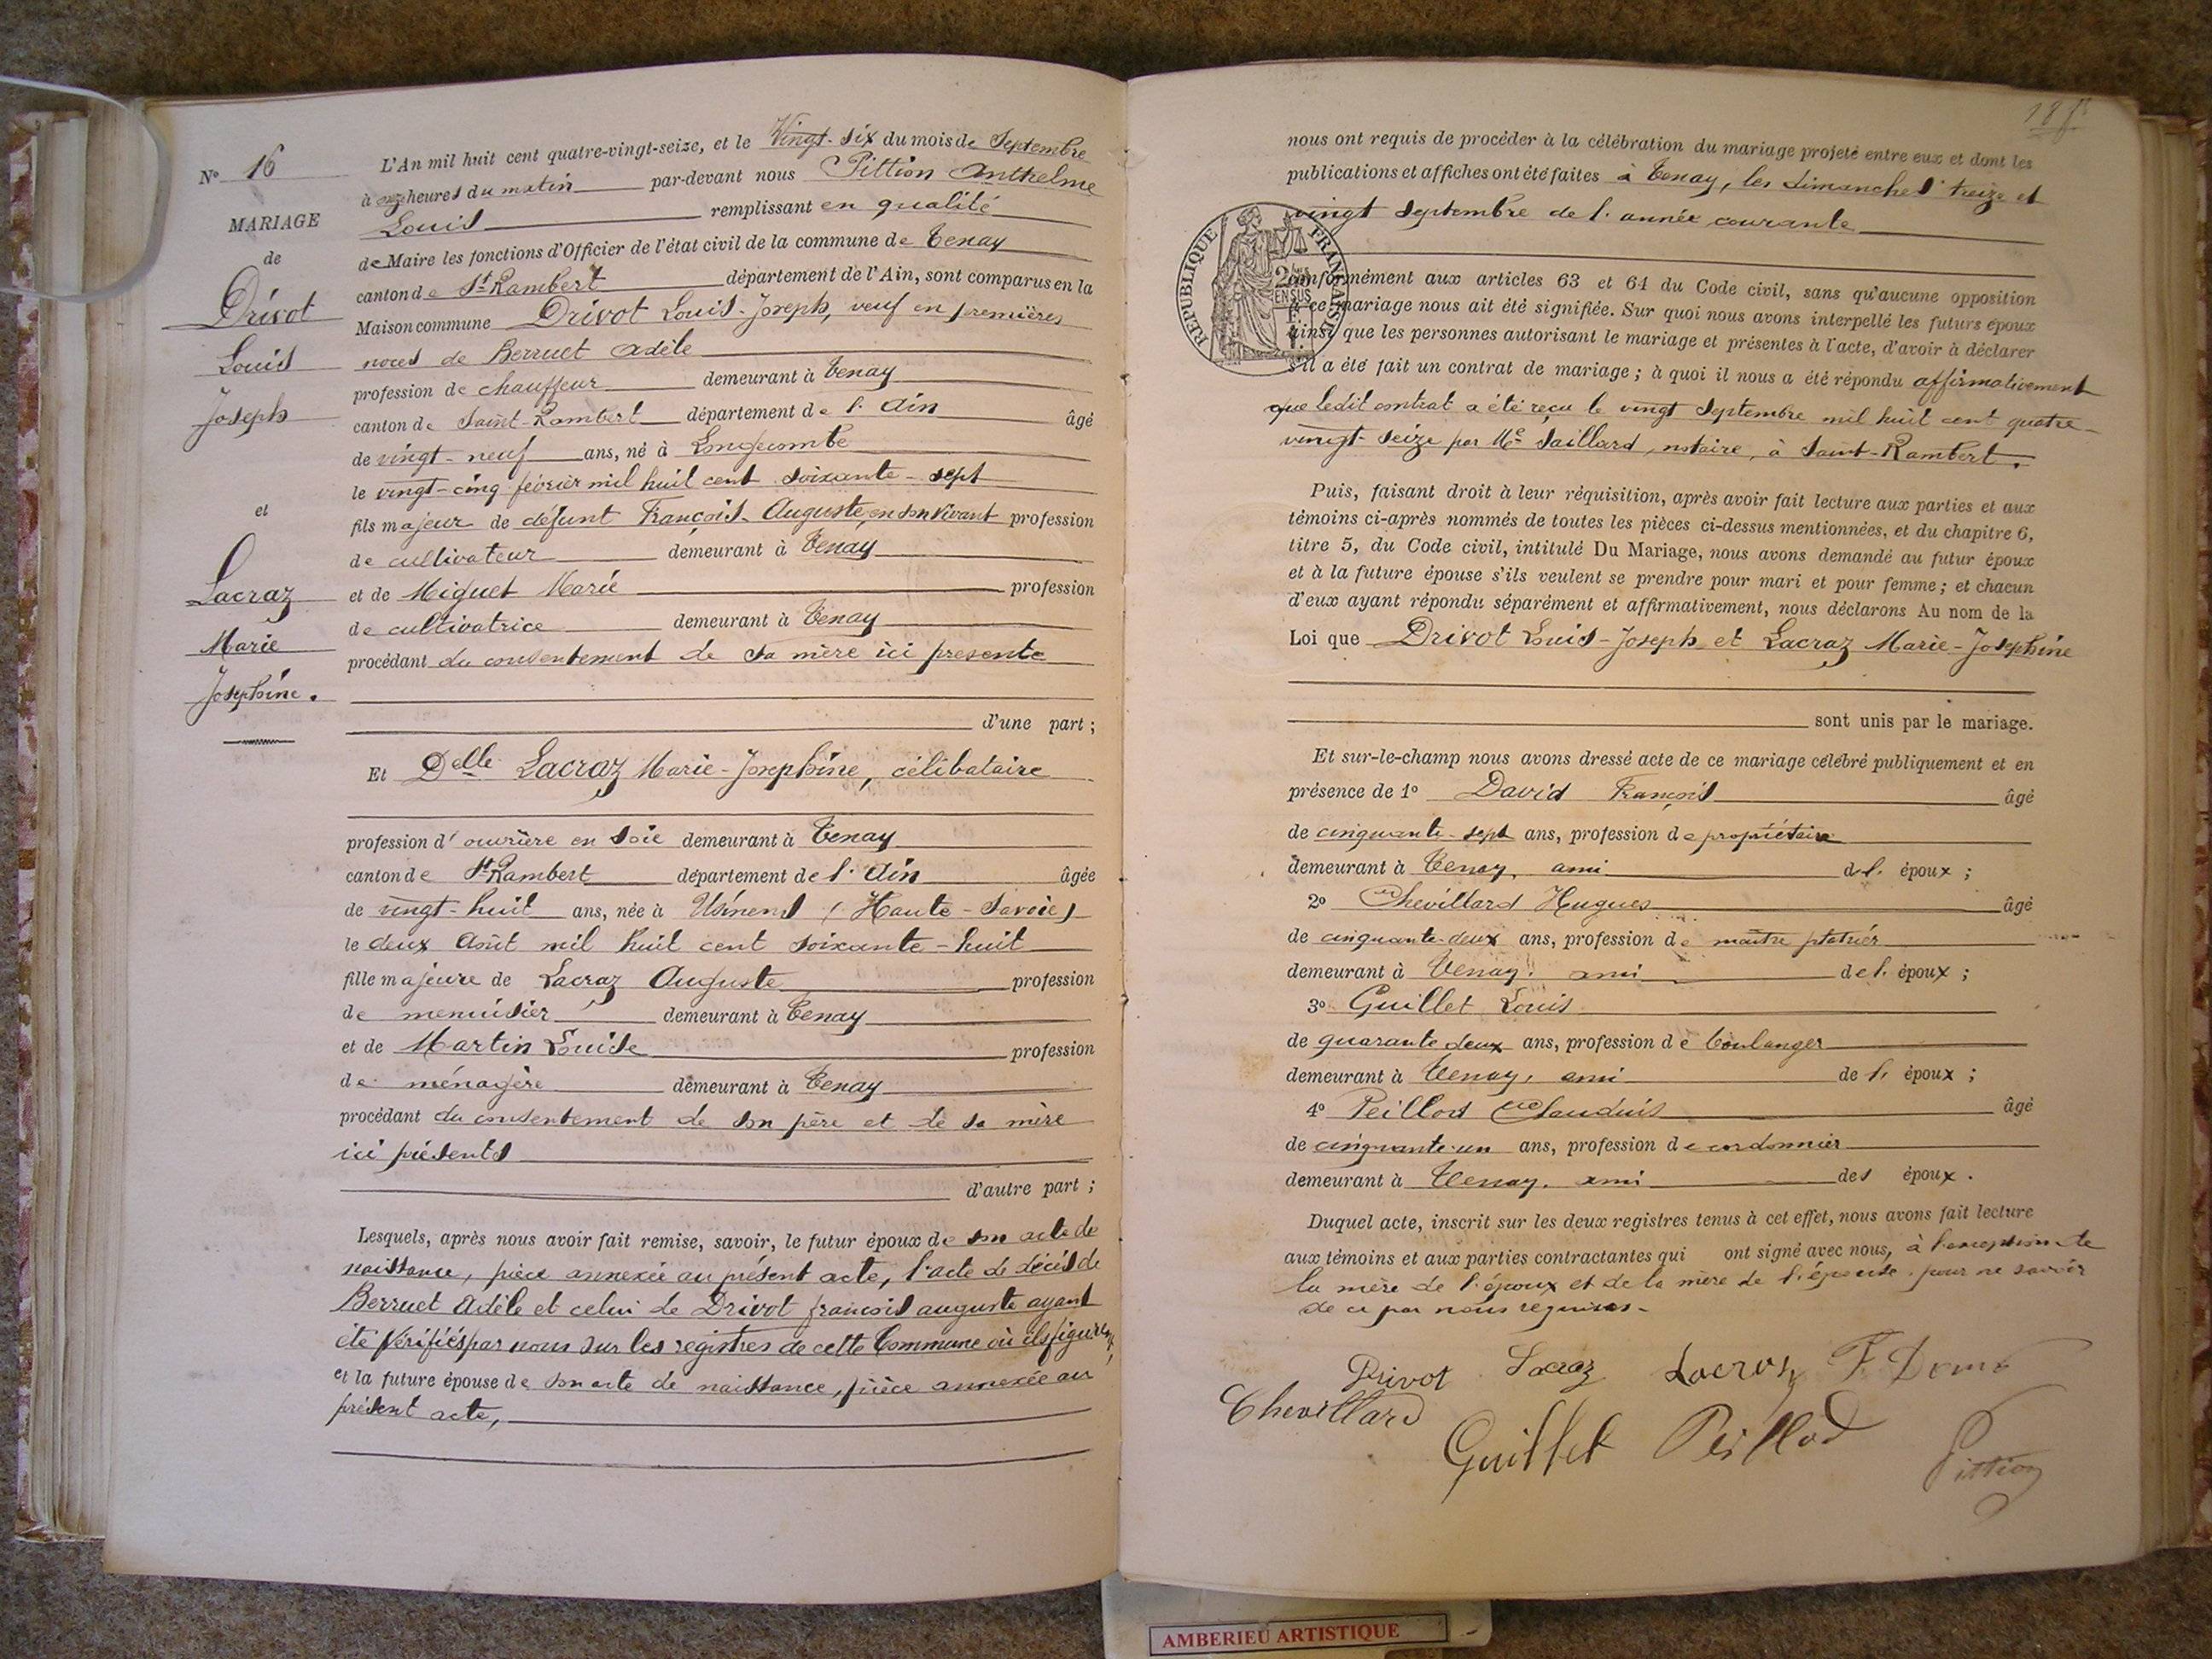 N° 16
MARIAGE
de
Drivot
Louis
Joseph
et
Lacraz
Marie
Josephine.
L'An mil huit cent quatre-vingt-seize, et le Vingt-six du mois de Septembre
à onze heures du matin par-devant nous Pittion Anthelme
Louis remplissant en qualité
de Maire les fonctions d'Officier de l'état civil de la commune de Tenay
canton de St Rambert département de l'Ain, sont comparus en la
Maison commune Drivot Louis-Joseph, veuf en premières
noces de Berruet Adèle
profession de chauffeur demeurant à Tenay
canton de Saint-Rambert département de l'Ain âgé
de vingt-neuf ans, né à Longecombe
le vingt-cinq février mil huit cent soixante-sept
fils majeur de défunt François-Auguste, en son vivant profession
de cultivateur demeurant à Tenay
et de Miguet Marie profession
de cultivatrice demeurant à Tenay
procédant du consentement de sa mère ici présente
d'une part ;
Et Delle Lacraz Marie-Josephine, célibataire
profession d'ouvrière en soie demeurant à Tenay
canton de St Rambert département de l'Ain âgée
de vingt-huit ans, née à Usinens (Haute-Savoie)
le deux Août mil huit cent soixante-huit
fille majeure de Lacraz Auguste profession
de menuisier demeurant à Tenay
et de Martin Louise profession
de ménagère demeurant à Tenay
procédant du consentement de son père et de sa mère
ici présents
d'autre part ;
Lesquels, après nous avoir fait remise, savoir, le futur époux de son acte de
naissance, pièce annexée au présent acte, l'acte de décès de
Berruet Adèle et celui de Drivot françois auguste ayant
été vérifiés par nous sur les registres de cette Commune où ils figurent,
et la future épouse de son acte de naissance, pièce annexée au
présent acte,
nous ont requis de procéder à la célébration du mariage projeté entre eux et dont les
publications et affiches ont été faites à Tenay, les dimanches treize et
vingt septembre de l'année courante
REPUBLIQUE FRANÇAISE
conformément aux articles 63 et 64 du Code civil, sans qu'aucune opposition
à ce mariage nous ait été signifiée. Sur quoi nous avons interpellé les futurs époux
ainsi que les personnes autorisant le mariage et présentes à l'acte, d'avoir à déclarer
s'il a été fait un contrat de mariage ; à quoi il nous a été répondu affirmativement
que ledit contrat a été reçu le vingt Septembre mil huit cent quatre-
vingt-seize par Me Saillard, notaire, à Saint-Rambert.
Puis, faisant droit à leur réquisition, après avoir fait lecture aux parties et aux
témoins ci-après nommés de toutes les pièces ci-dessus mentionnées, et du chapitre 6,
titre 5, du Code civil, intitulé Du Mariage, nous avons demandé au futur époux
et à la future épouse s'ils veulent se prendre pour mari et pour femme ; et chacun
d'eux ayant répondu séparément et affirmativement, nous déclarons Au nom de la
Loi que Drivot Louis-Joseph et Lacraz Marie-Josephine
sont unis par le mariage.
Et sur-le-champ nous avons dressé acte de ce mariage célébré publiquement et en
présence de 1° David François âgé
de cinquante-sept ans, profession de propriétaire
demeurant à Tenay, ami de l'époux ;
2° Chevillard Hugues âgé
de cinquante-deux ans, profession de maître plâtrier
demeurant à Tenay, ami de l'époux ;
3° Guillet Louis
de quarante deux ans, profession de boulanger
demeurant à Tenay, ami de l'époux ;
4° Peillod Claudius âgé
de cinquante-un ans, profession de cordonnier
demeurant à Tenay, ami des époux.
Duquel acte, inscrit sur les deux registres tenus à cet effet, nous avons fait lecture
aux témoins et aux parties contractantes qui ont signé avec nous, à l'exception de
la mère de l'époux et de la mère de l'épouse pour ne savoir
de ce par nous requises-
Drivot Lacraz Lacraz F. David
Chevillard
Guillet Peillod
Pittion
AMBERIEU ARTISTIQUE